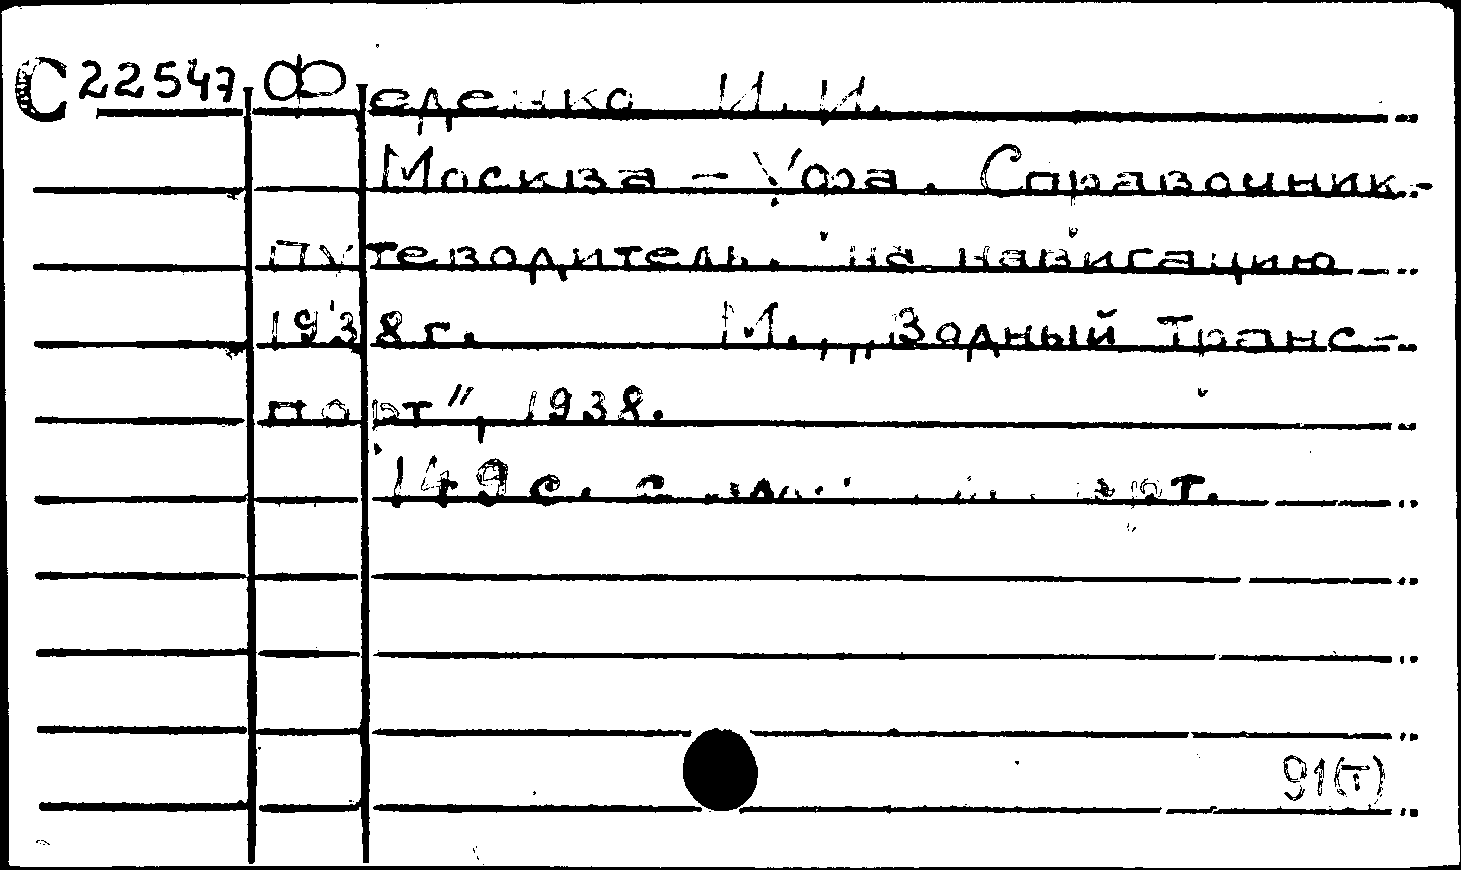 С22547 Феденко И. И.
Москва – Уфа. Справочник-
путеводитель. на навигацию
1938 г. М., „Водный Транс-
порт", 1938.
149 с. с карт.
91(Т)